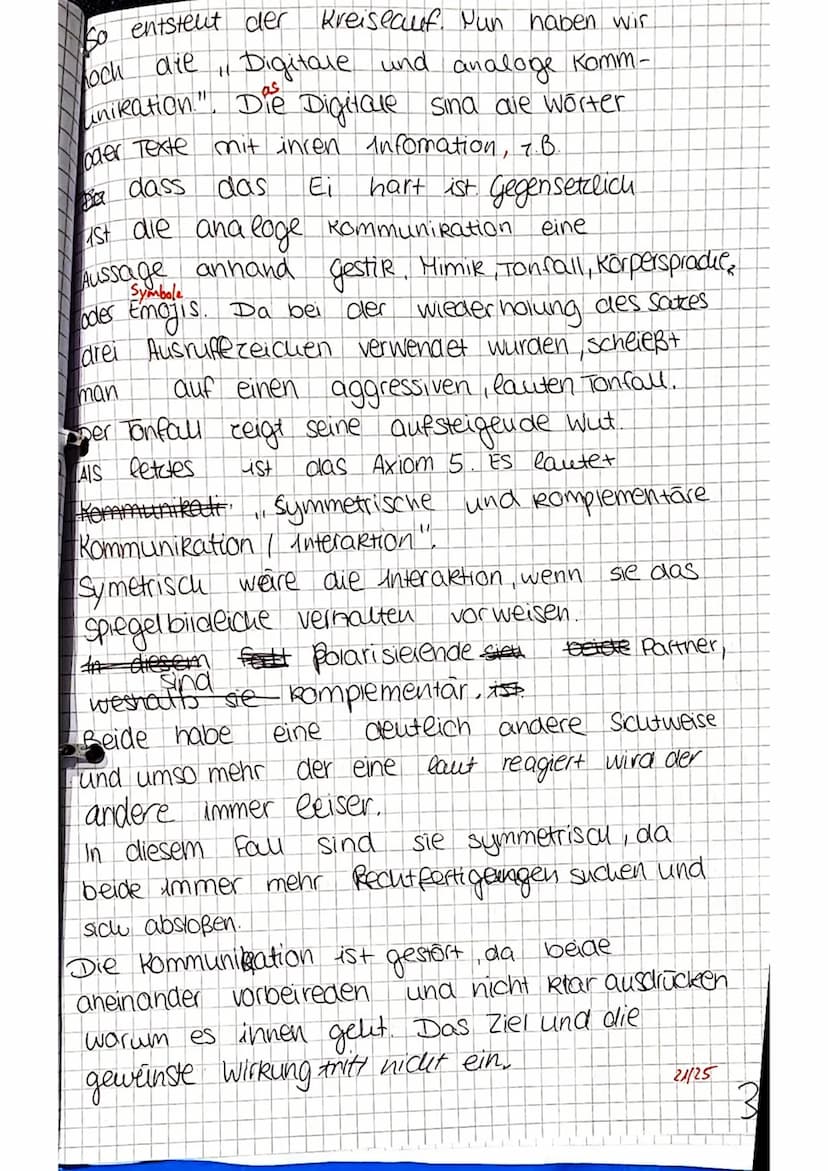 So entsteht der Kreislauf. Nun haben wir
noch die „Digitale und analoge Komm-
unikation". Die Digitale sind die Wörter
as
oder Texte mit ihren Infomation, z.B.
dass das Ei hart ist. Gegensetzlich
ist die analoge Kommunikation eine
Aussage anhand Gestik, Mimik, Tonfall, Körpersprache,
Symbole
oder Emojis. Da bei der wiederholung des Satzes
drei Ausruffezeichen verwendet wurden, scheießt
man auf einen aggressiven, lauten Tonfall.
Der Tonfall zeigt seine aufsteigende Wut.
Als letztes ist das Axiom 5. Es lautet
Kommunikati. „Symmetrische und komplementäre
Kommunikation / Interaktion".
Symetrisch wäre die Interaktion, wenn sie das
spiegelbildliche verhalten vorweisen.
In diesem Fall Polarisierende sich beide Partner,
sind
weshalb sie komplementär. ist.
Beide habe eine deutlich andere Sichtweise
und umso mehr der eine laut reagiert wird der
andere immer leiser.
In diesem Fall sind sie symmetrisch, da
beide immer mehr Rechtfertigungen suchen und
sich abstoßen.
Die Kommunikation ist gestört, da beide
aneinander vorbeireden und nicht klar ausdrücken
warum es ihnen geht. Das Ziel und die
gewünste Wirkung tritt nicht ein.
21/25
3